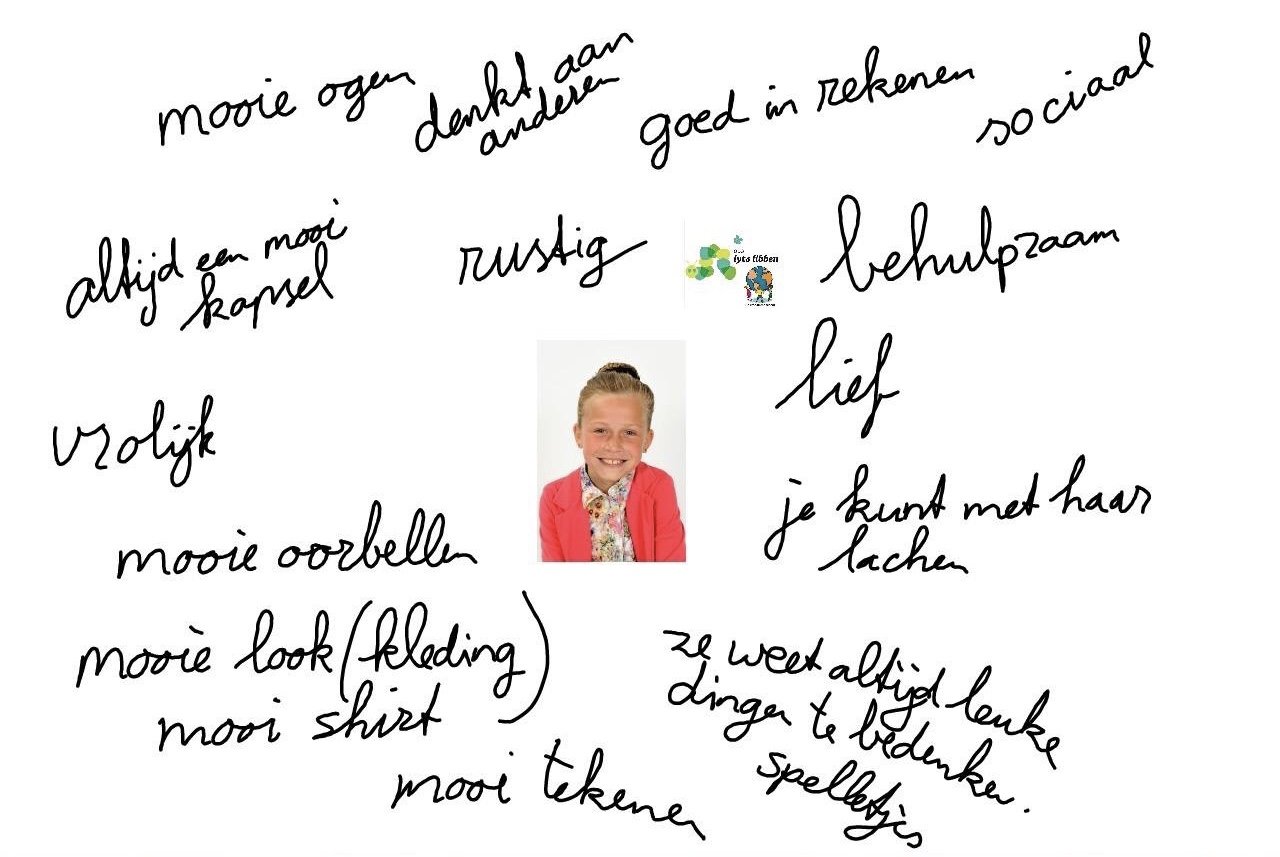 mooie ogen
denkt aan
anderen
goed in rekenen
sociaal
altijd een mooi
kapsel
rustig
lyts libben
behulpzaam
lief
vrolijk
je kunt met haar
lachen
mooie oorbellen
mooie look (kleding)
mooi shirt
ze weet altijd leuke
dingen te bedenken.
spelletjes
mooi tekenen